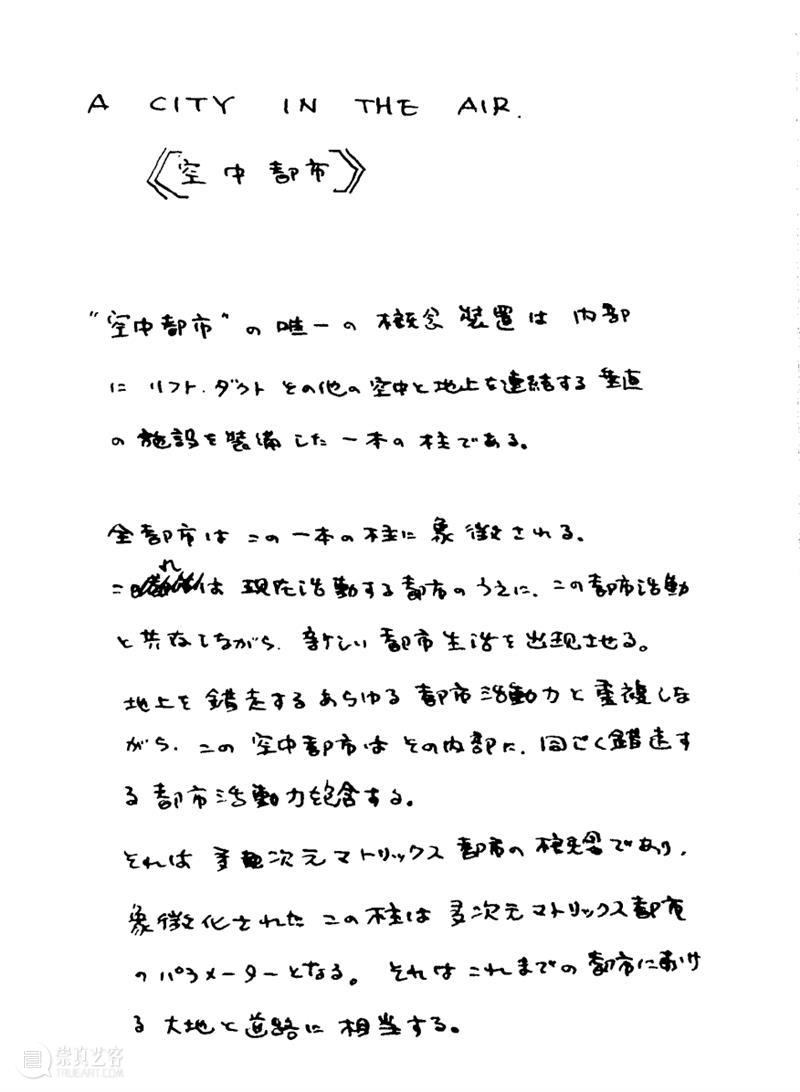 A CITY IN THE AIR.
《空中都市》
"空中都市"の唯一の概念装置は内部
にリフト.ダクトその他の空中と地上を連結する垂直
の施設を装備した一本の柱である。
全都市はこの一本の柱に象徴される。
これは現在活動する都市のうえに、この都市活動
と共存しながら、新しい都市生活を出現させる。
地上を錯走するあらゆる都市活動力と重複しな
がら、この空中都市はその内部に、同じく錯走す
る都市活動力を包含する。
それは多次元マトリックス都市の概念であり、
象徴化されたこの柱は多次元マトリックス都市
のパラメーターとなる。それはこれまでの都市におけ
る大地と道路に相当する。
崇真艺客
TRUEART.COM